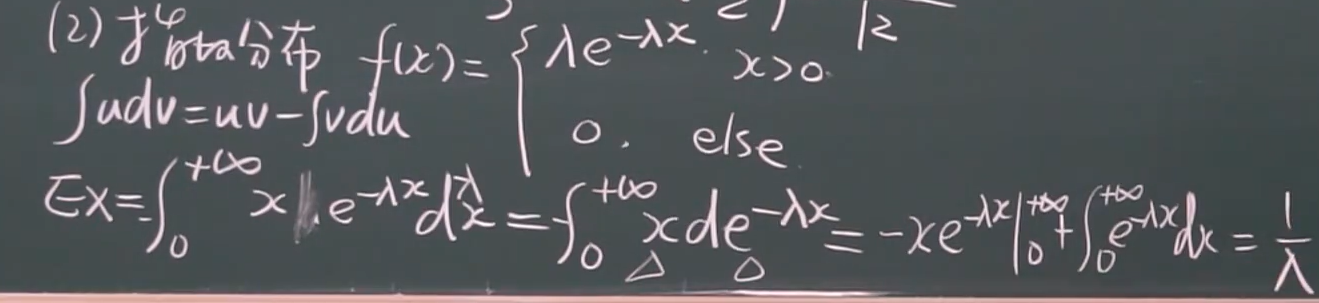 (2) 指数分布 f(x)= { λe^{-λx}. x>0. 0. else.
12
∫udv=uv-∫vdu
EX=∫_0^{+∞} x e^{-λx}dλx=-∫_0^{+∞} xde^{-λx}=-xe^{-λx}|_0^{+∞}+∫_0^{+∞}e^{-λx}dx=1/λ